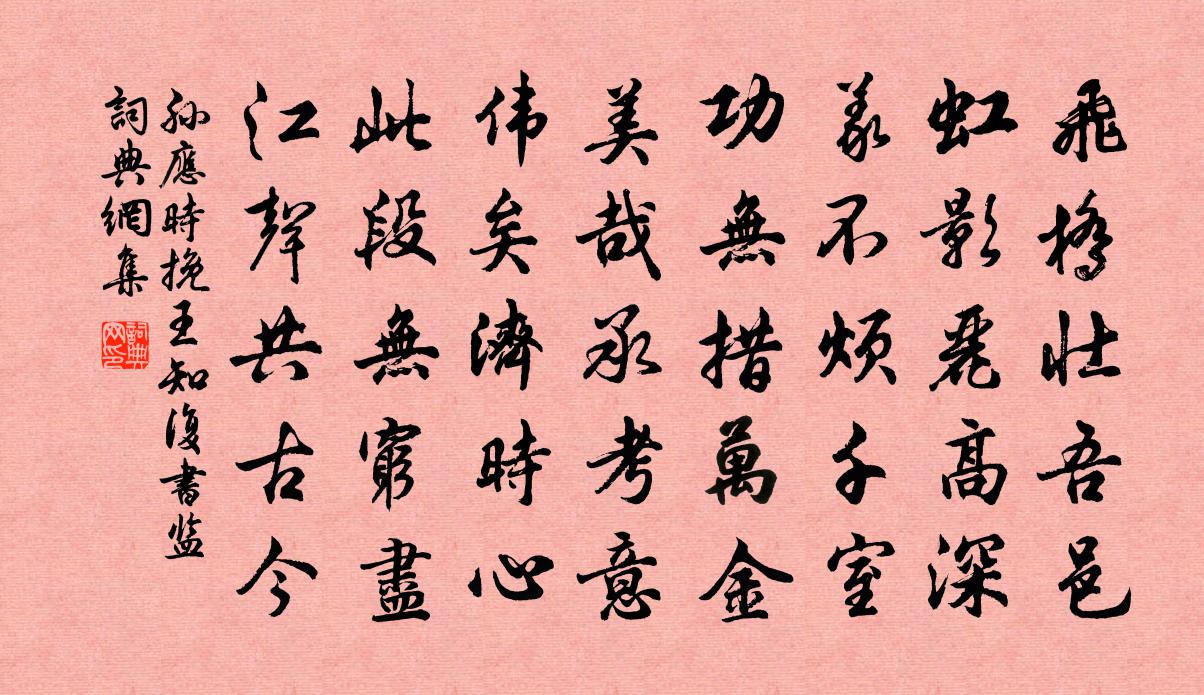 飛橋壮吾邑
虹影麗高深
義不煩千室
功無措萬金
美哉承考意
伟矣濟時心
此段無窮盡
江聲共古今
孫應時挽王知復書监
詞典網集
詞典网印